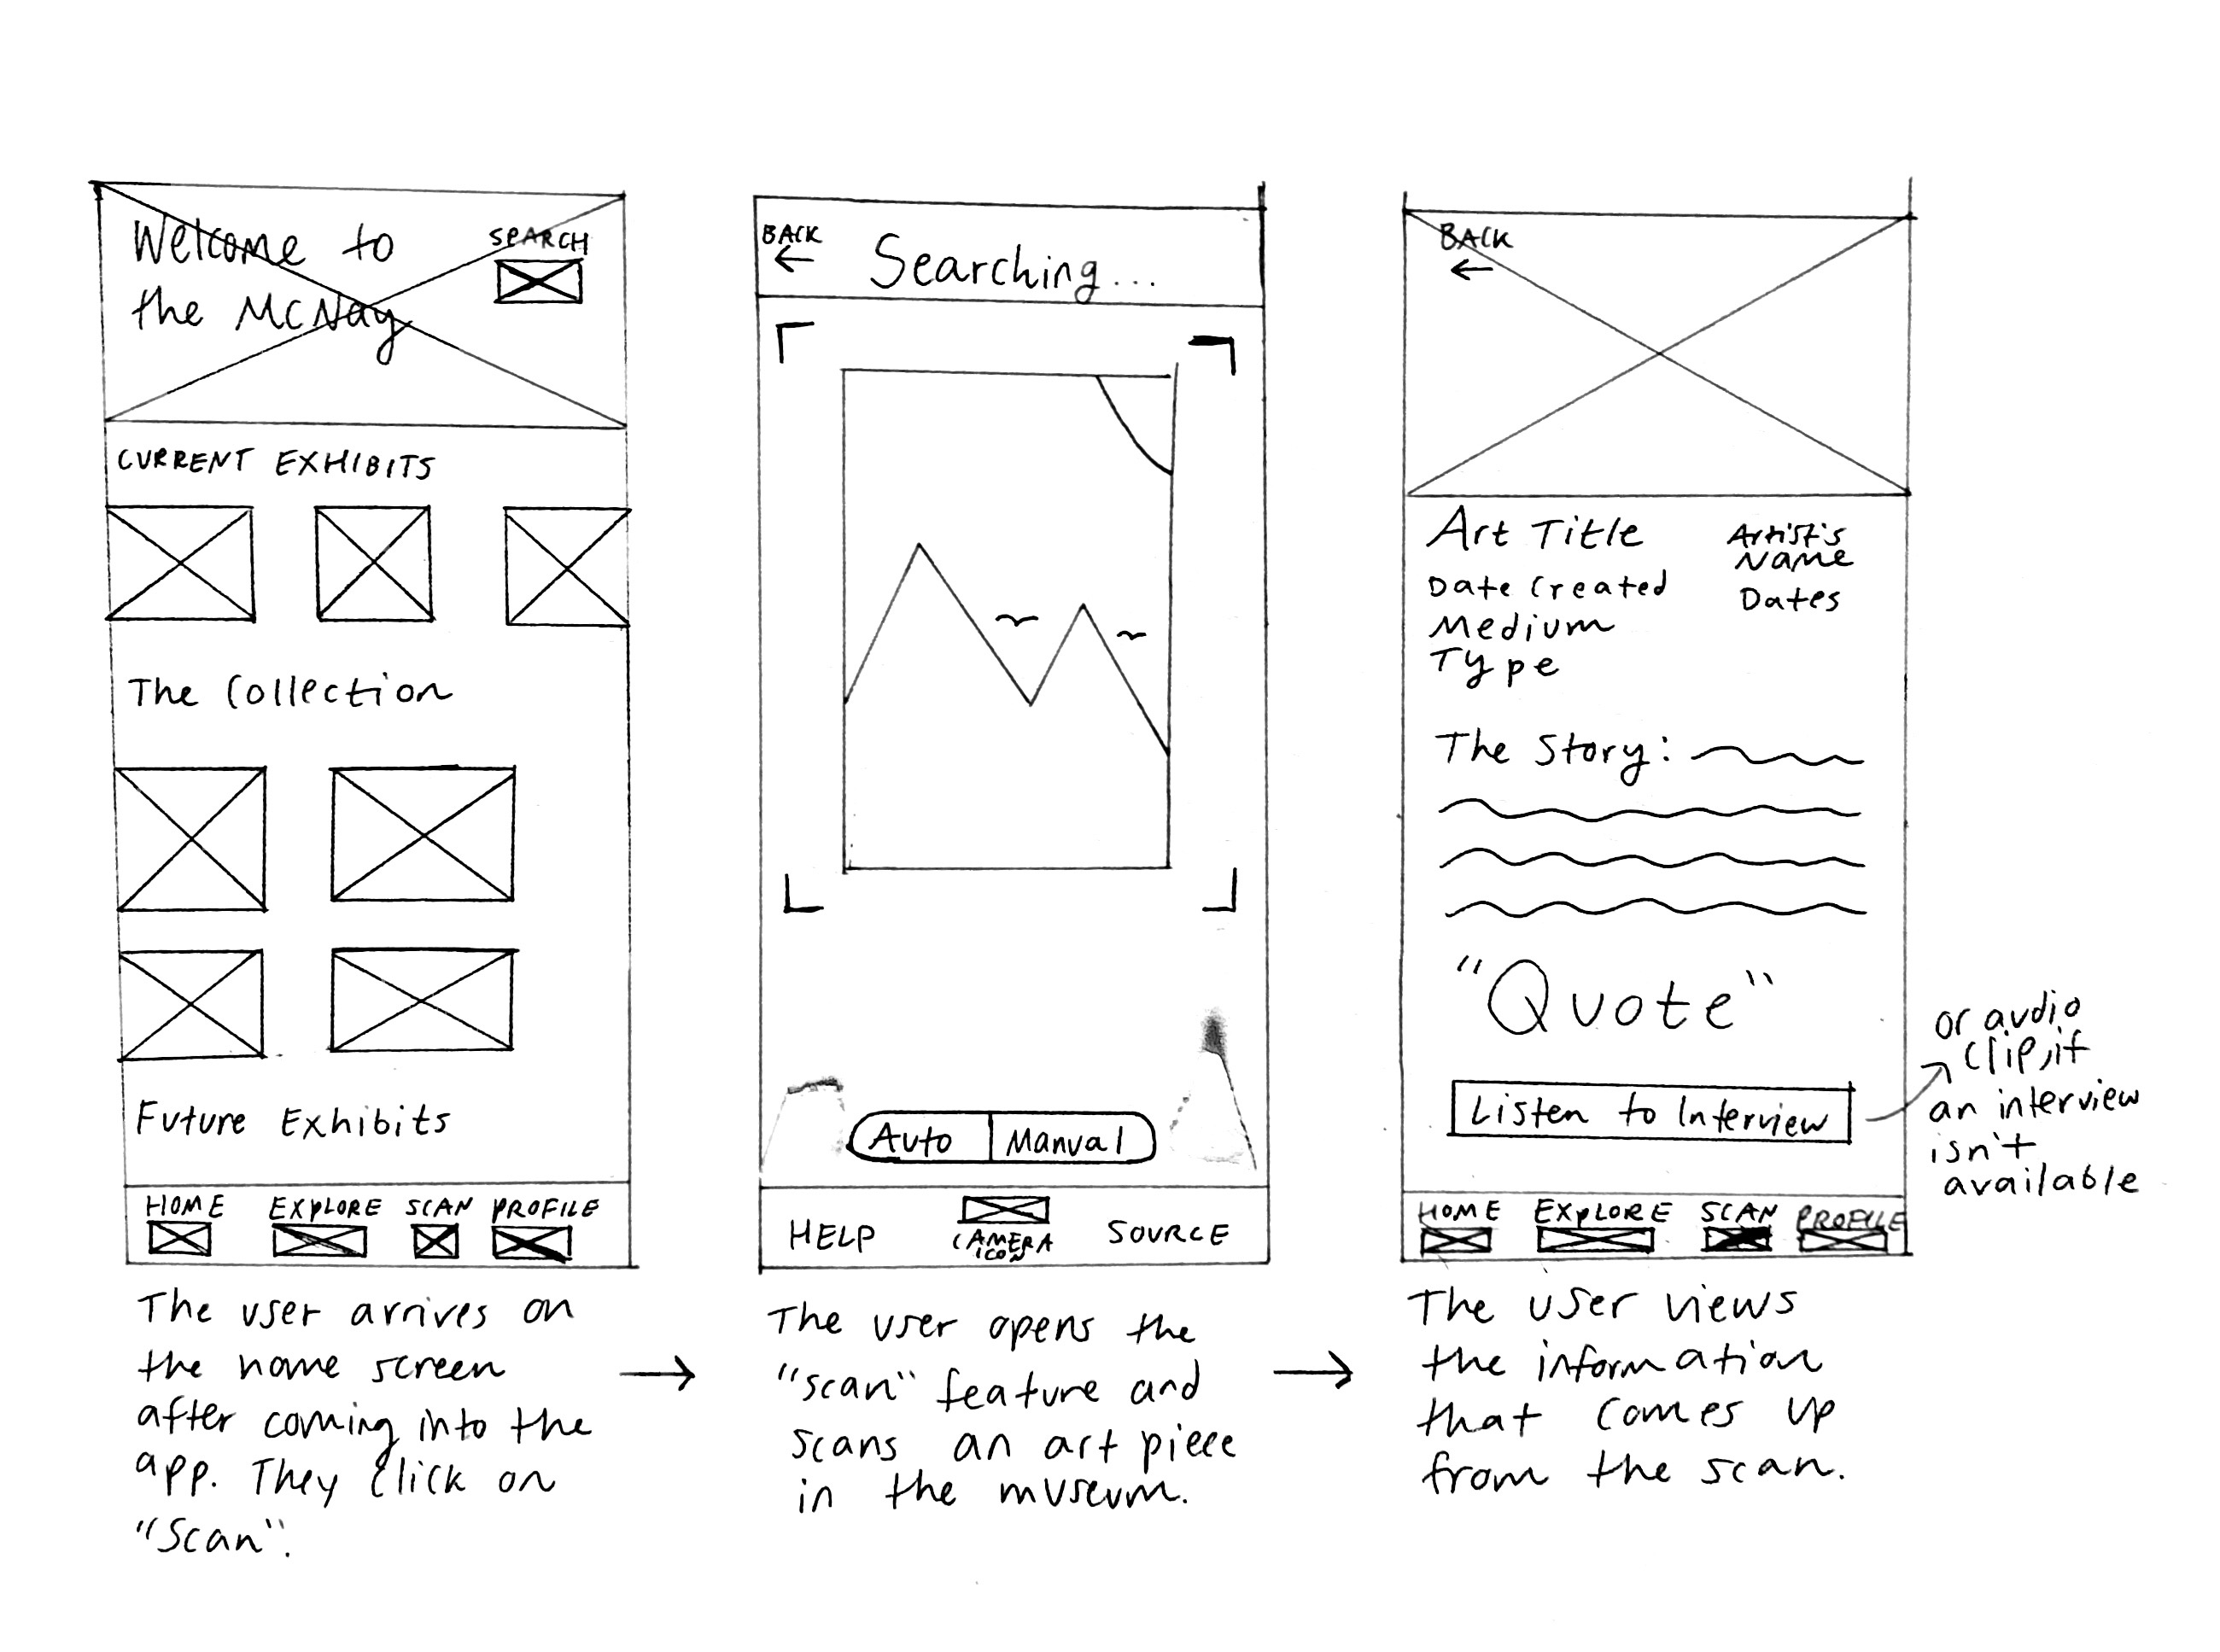 Welcome to
the McNay
SEARCH
CURRENT EXHIBITS
The Collection
Future Exhibits
HOME EXPLORE SCAN PROFILE
The user arrives on
the home screen
after coming into the
app. They click on
"Scan".
BACK
←
Searching...
Auto Manual
HELP
CAMERA
ICON
SOURCE
→
The user opens the
"scan" feature and
scans an art piece
in the museum.
→
BACK
←
Art Title
Date Created
Medium
Type
Artist's
Name
Dates
The Story:
"Quote"
Listen to Interview
or audio
clip, if
an interview
isn't
available
HOME EXPLORE SCAN PROFILE
The user views
the information
that comes up
from the scan.